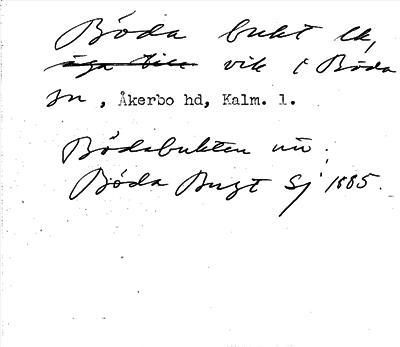 Böda bukt lk,
äga till vik i Böda
sn, Åkerbo hd, Kalm. l.
Bödabukten uu;
Böda Bugt Sj 1885.